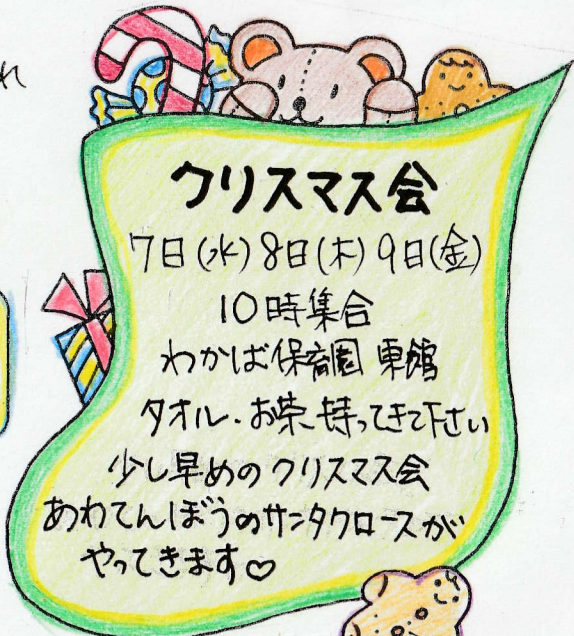 れ
クリスマス会
7日(水)8日(木)9日(金)
10時集合
わかば保育園 東館
タオル・お茶持ってきて下さい
少し早めのクリスマス会
あわてんぼうのサンタクロースが
やってきます♡